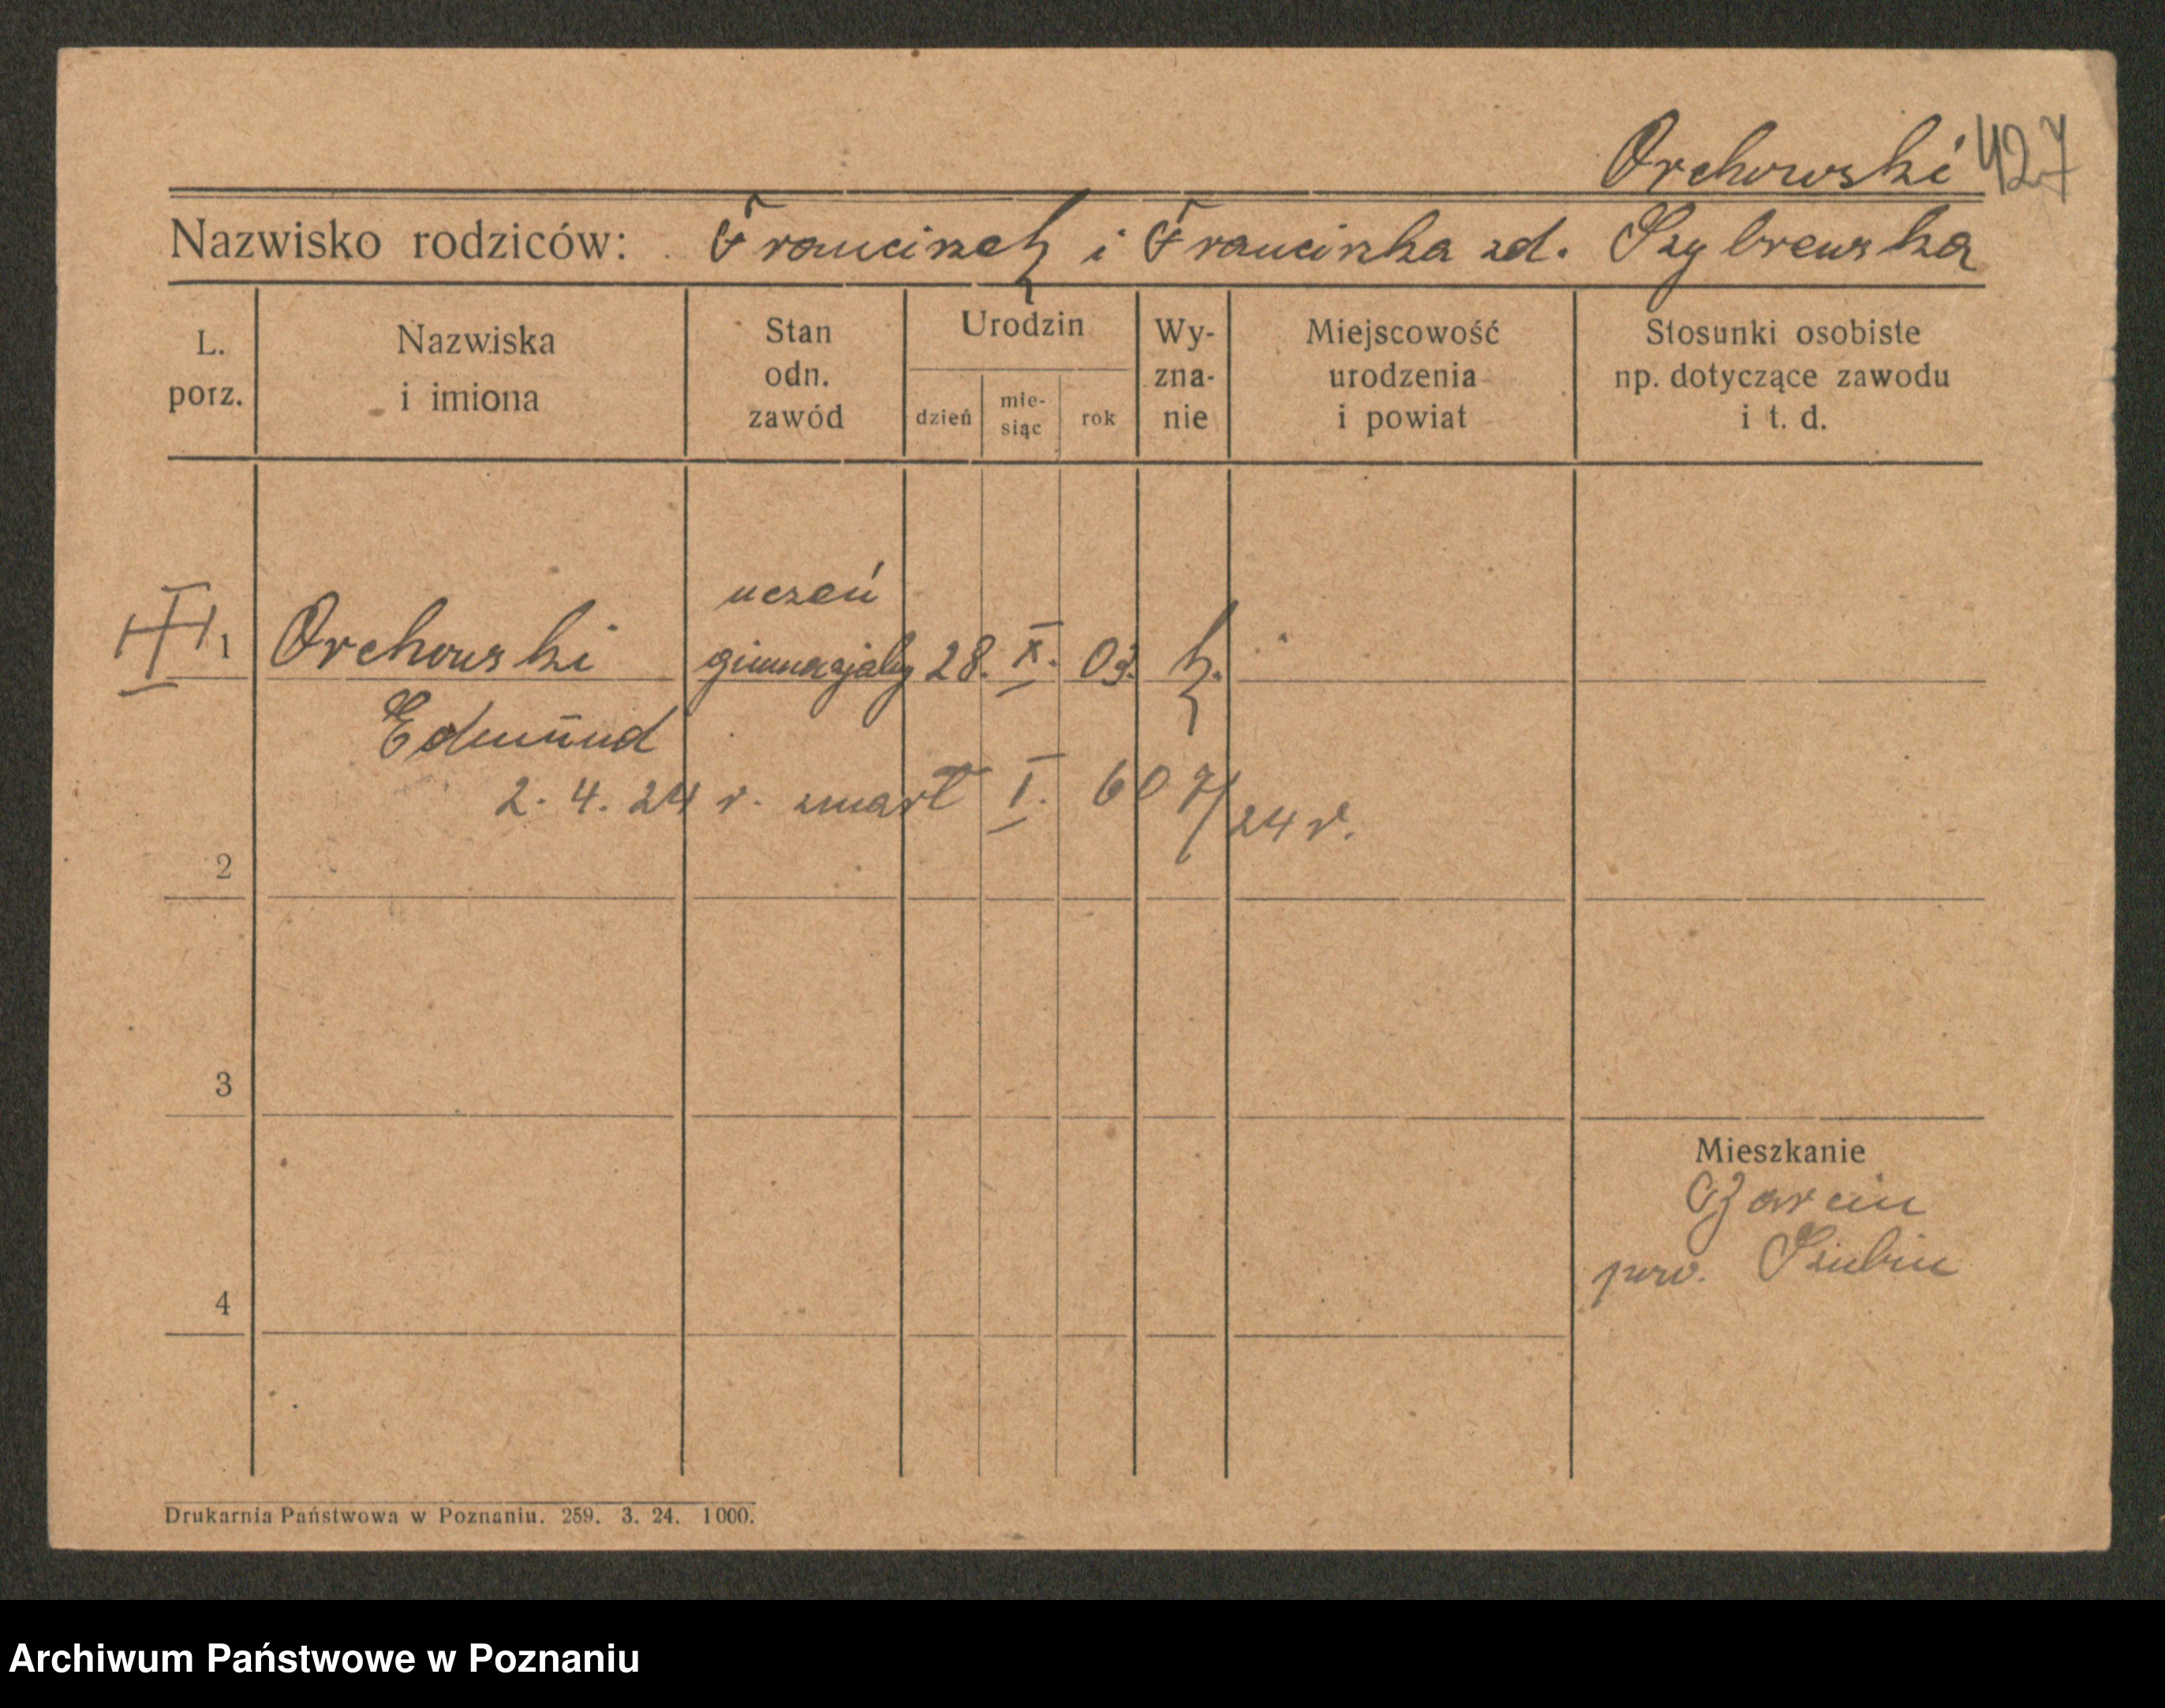 Orchowski 427
Nazwisko rodziców: Franciszek i Franciszka zd.
L. porz.
Nazwiska i imiona
Stan odn. zawód
Urodzin
dzień
mie-
siąc
rok
Wy-
zna-
nie
Miejscowość
urodzenia
i powiat
Stosunki osobiste
np. dotyczące zawodu
i t. d.
uczeń
1 Orchowski gimnazjalny 28. X. 03. k.
Edmund
2. 4. 24 r. zmarł I. 607/24 r.
2
3
4
Mieszkanie
pow. Szubin
Drukarnia Państwowa w Poznaniu. 259. 3. 24. 1000.
Archiwum Państwowe w Poznaniu